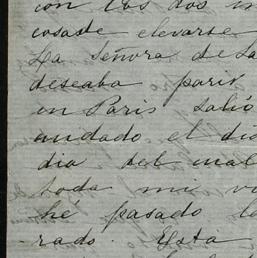 con los dos
cosa de elevarse
La señora de Sa
deseaba parir
en Paris salió
andado el dia
dia del mal
toda mi vi
he pasado la
rado. Esta